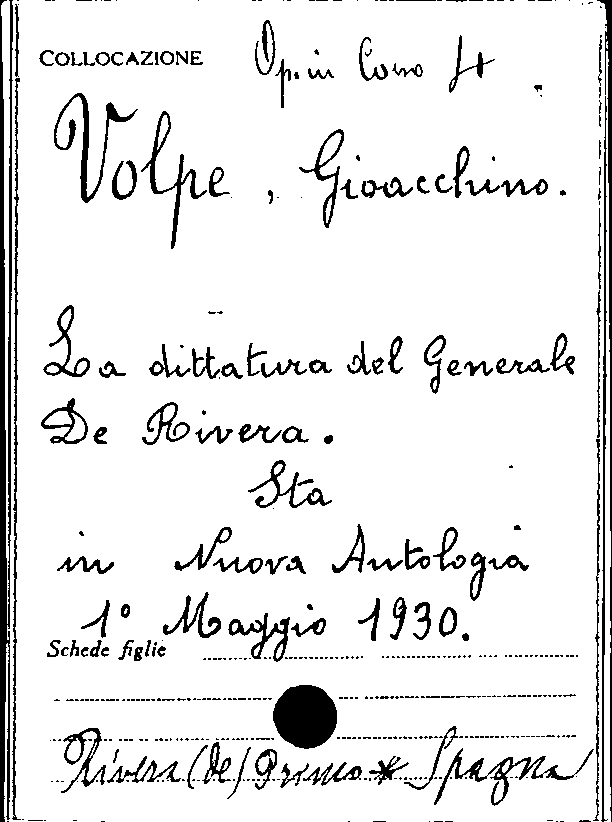 COLLOCAZIONE Op. in Corso 4
Volpe, Gioacchino.
La dittatura del Generale
De Rivera.
Sta
in Nuova Antologia
1° Maggio 1930.
Schede figlie
Rivera (de) Primo * Spagna